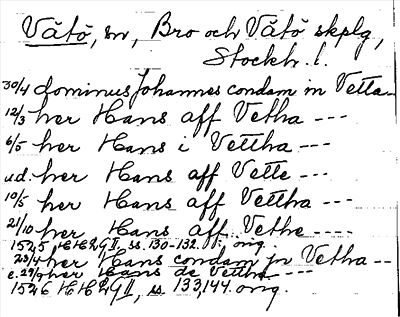 Vätö, sn, Bro och Vätö skplg,
Stockh. l.
30/4 dominus Johannes condam in Vetta--
12/3 her Hans aff Vetha ---
6/5 her Hans i Vettha ---
ud. her Hans aff Vette ---
10/5 her Hans aff Vettha ---
21/10 her Hans aff Vethe ----
1525 HHLG II, ss. 130-132. orig.
23/4 her Hans condam in Vetha --
e. 29/9 her Hans de Vettha ----
1526 HHLG II, ss. 133,144. orig.